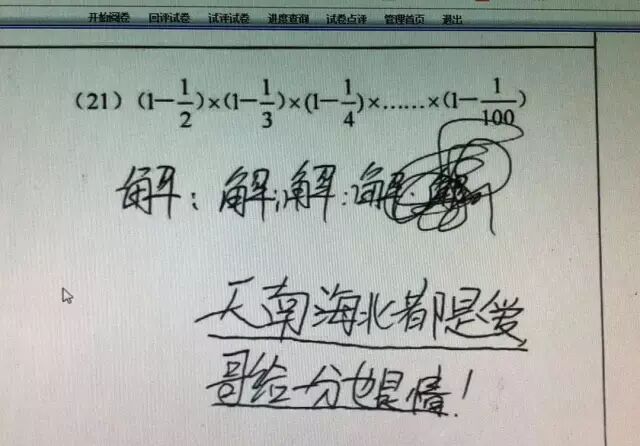 开始阅卷 回评试卷 试评试卷 进度查询 试卷点评 管理首页 退出
(21) (1-1/2)×(1-1/3)×(1-1/4)×……×(1-1/100)
解：解：解：解
天南海北都是爱
哥给一分也是情！